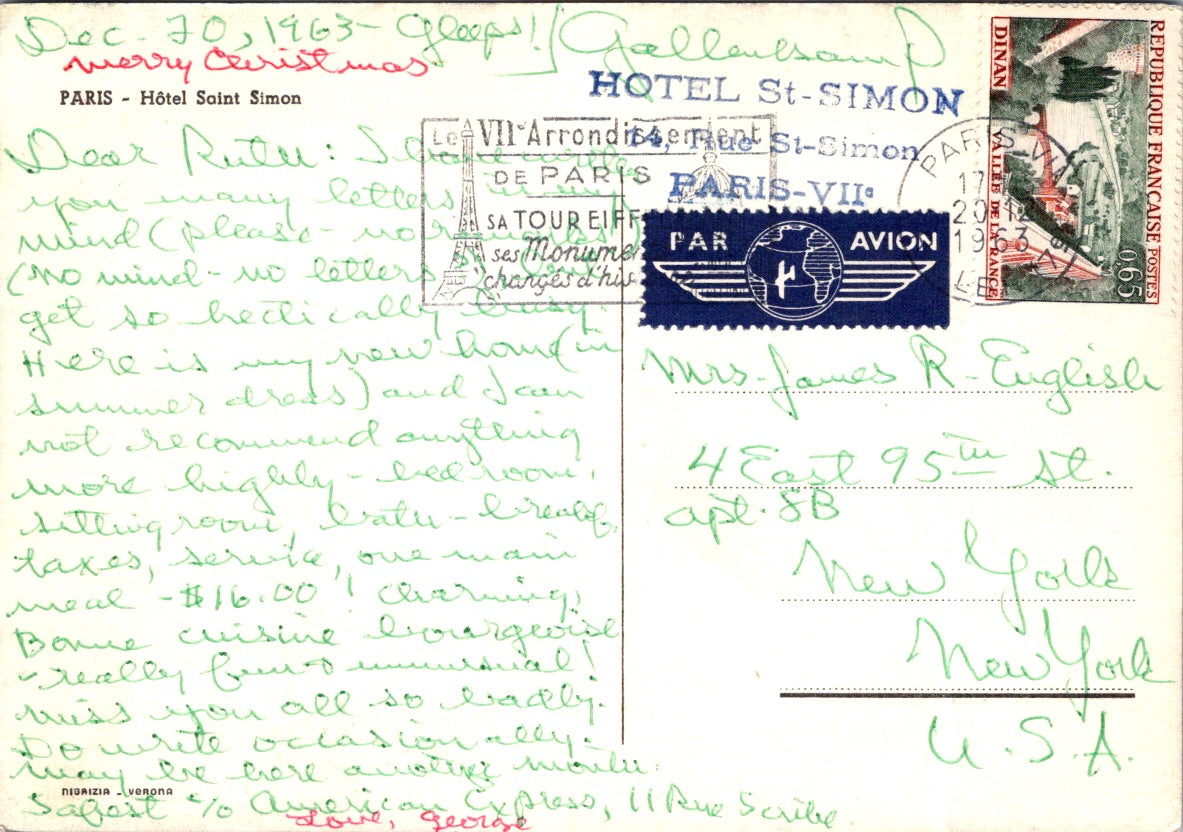 Dec. 20, 1963 - Gleeps! / Gallenkamp
Merry Christmas
PARIS - Hôtel Saint Simon
HOTEL St-SIMON
14, Rue St-Simon
PARIS-VIIe
Le VIIe Arrondissement
DE PARIS
SA TOUR EIFF
ses Monumen
chargés d'his
PAR AVION
PARIS VII
17
20-12
1963
REPUBLIQUE FRANÇAISE POSTES
0,65
DINAN
VALLEE DE LA FRANCE
Dear Ruth: I have written
you many letters in my
mind (please - no
(no mind - no letters
get so hectically busy.
Here is my new home (in
summer dress) and I can
not recommend anything
more highly - bedroom,
sitting room, bath - breakf,
taxes, service, one main
meal - $16.00! Charming,
Bonne cuisine bourgeoise
- really fun & unusual!
miss you all so badly.
Do write occasionally -
may be here another month.
Safest c/o American Express, 11 Rue Scribe.
Love, George
Mrs. James R. English
4 East 95th St.
apt. 8B
New York
New York
U.S.A.
NIGRIZIA - VERONA